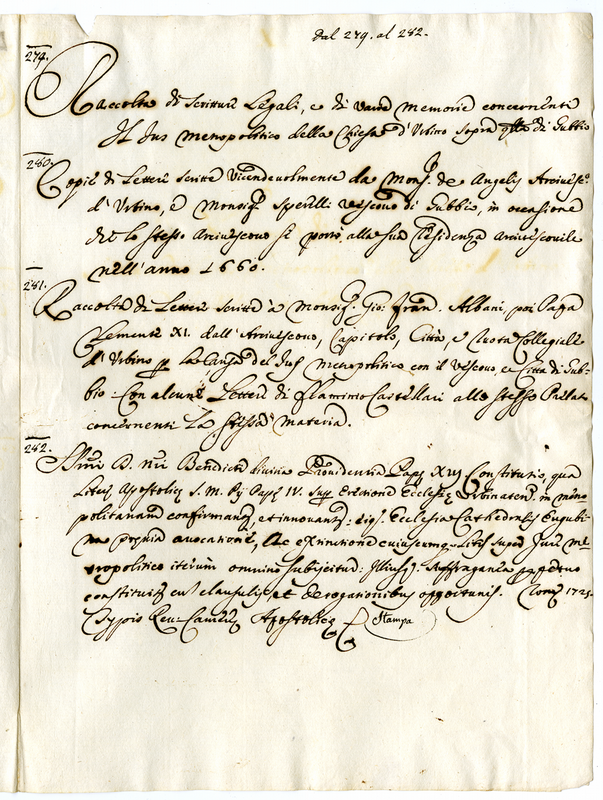 Dal 279. al 282.
279.
Raccolta di Scritture Legali, e di varie Memorie concernenti
Il Jus Metropolitico della Chiesa d'Urbino sopra qlla di Gubbio
280.
Copie di Lettere scritte vicendevolmente da Monsig. de Angelis Arcivesc.
d'Urbino, e Monsig. Sperelli Vescovo di Gubbio, in occasione
che lo stesso Arcivescovo si portò alla sua Residenza Arcivescovile
nell'anno 1660.
281.
Raccolta di Lettere scritte à Monsig. Gio: Fran. Albani, poi Papa
Clemente XI. dall'Arcivescovo, Capitolo, Città, e Ruota Collegiale
d'Urbino p la Causa del Jus Metropolitico con il Vescovo, e Città di Gub-
bio. Con alcune Lettere di Flaminio Castellari allo stesso Prelato
concernenti la stessa materia.
282.
SSmi D. Nri Benedicti divina Providentia Papę XIII Constitutio, qua
Literę Apostolicę S. M. Pij Papę IV. super Erectione Ecclesię Urbinaten. in Metro
politanam confirmanť, et innovanť: eiq. Ecclesia Cathedralis Eugubi-
na propria avocatione, ac extinctione cuiuscumq. Litis super Jure Me-
tropolitico iterum omnino subijcitur: Suffraganea perpetuo
constituiť cum clausulis, et derogationibus opportunis. Romę 1725.
Typis Rev. Camerę Apostolicę Stampa